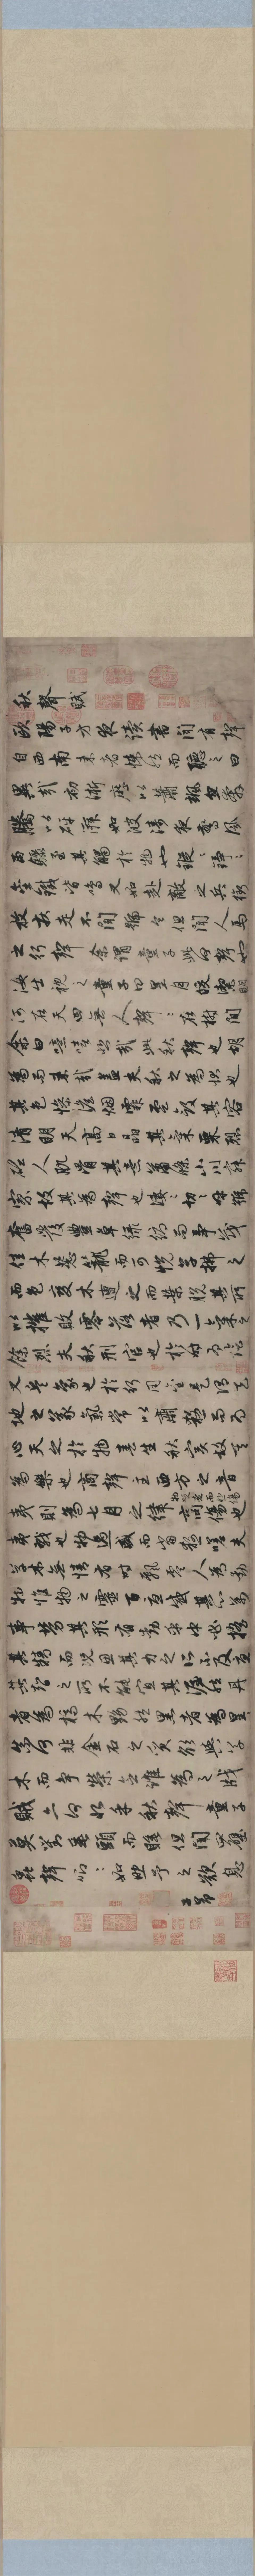 秋聲賦
歐陽子方夜讀書聞有聲
自西南來者悚然而聽之曰
異哉初淅瀝以蕭颯忽奔
騰以砰湃如波濤夜驚風
雨驟至其觸於物也鏦〻錚〻
金鐵皆鳴又如赴敵之兵銜
枚疾走不聞號令但聞人馬
之行聲余謂童子此何聲也
汝出視之童子曰星月皎潔明
河在天四無人聲〻在樹間
余曰噫嘻悲哉此秋聲也胡
為而來哉蓋夫秋之為狀也
其色慘澹烟霏雲斂其容
清明天高日晶其氣栗烈
砭人肌骨其意蕭條山川寂
寥故其為聲也淒〻切〻呼號
奮發豐草綠縟而爭茂
佳木葱蘢而可悅草拂之
而色變木遭之而葉脫其所
以摧敗零落者乃一氣之
餘烈夫秋刑官也於時為陰
又兵象也於行為金是謂天
地之義氣常以肅殺而為
心天之於物春生秋實故其
為樂也商聲主西方之音
夷則為七月之律商傷也
物既老而悲傷
夷戮也物過盛而當殺嗟夫
草木無情有時飄零人為動
物惟物之靈百憂感其心萬
事勞其形有動乎中必搖
其精而況思其力之所不及憂
其智之所不能宜其渥然丹
者為槁木黟然黑者為星
星奈何非金石之質欲與草
木而爭榮念誰為之戕
賊亦何恨乎秋聲童子
莫對垂頭而睡但聞四壁
蟲聲唧〻如助予之歎息
子昂